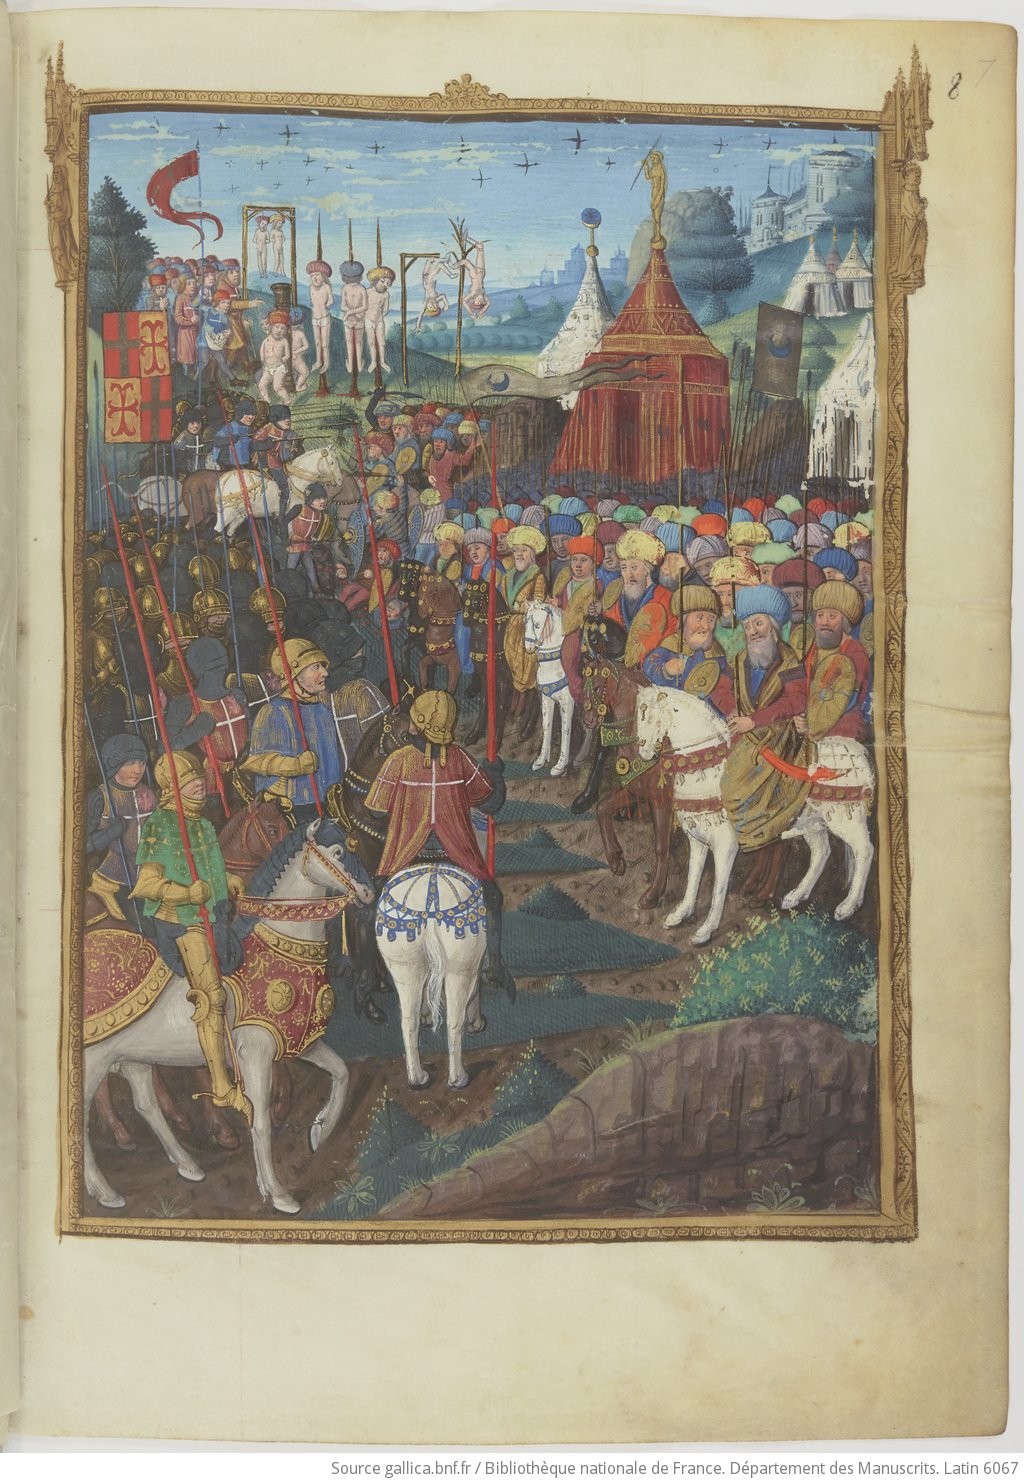 7
8
Source gallica.bnf.fr / Bibliothèque nationale de France. Département des Manuscrits. Latin 6067